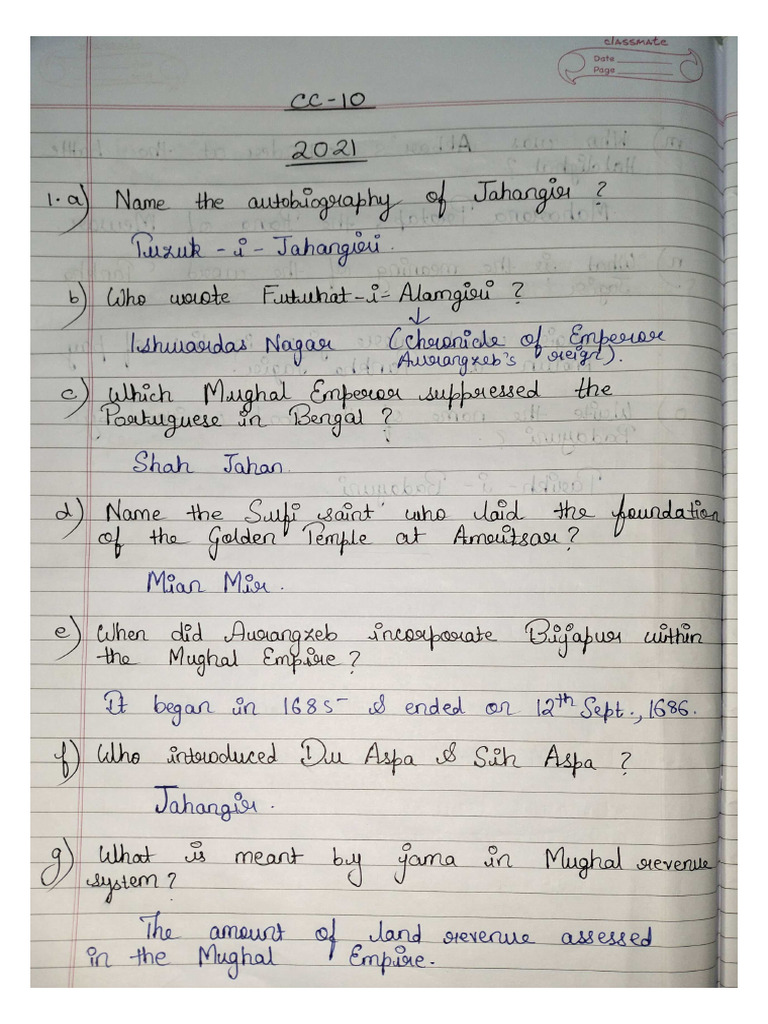 classmate
Date
Page
CC-10
2021
1. a) Name the autobiography of Jahangir ?
Tuzuk - i - Jahangiri.
b) Who wrote Futuhat-i-Alamgiri ?
↓
Ishwardas Nagar (Chronicle of Emperor
Aurangzeb's reign).
c) Which Mughal Emperor suppressed the
Portuguese in Bengal ?
Shah Jahan.
d) Name the Sufi saint who laid the foundation
of the Golden Temple at Amritsar?
Mian Mir.
e) When did Aurangzeb incorporate Bijapur within
the Mughal Empire?
It began in 1685 & ended on 12th Sept., 1686.
f) Who introduced Du Aspa & Sih Aspa ?
Jahangir.
g) What is meant by jama in Mughal revenue
system?
The amount of land revenue assessed
in the Mughal Empire.